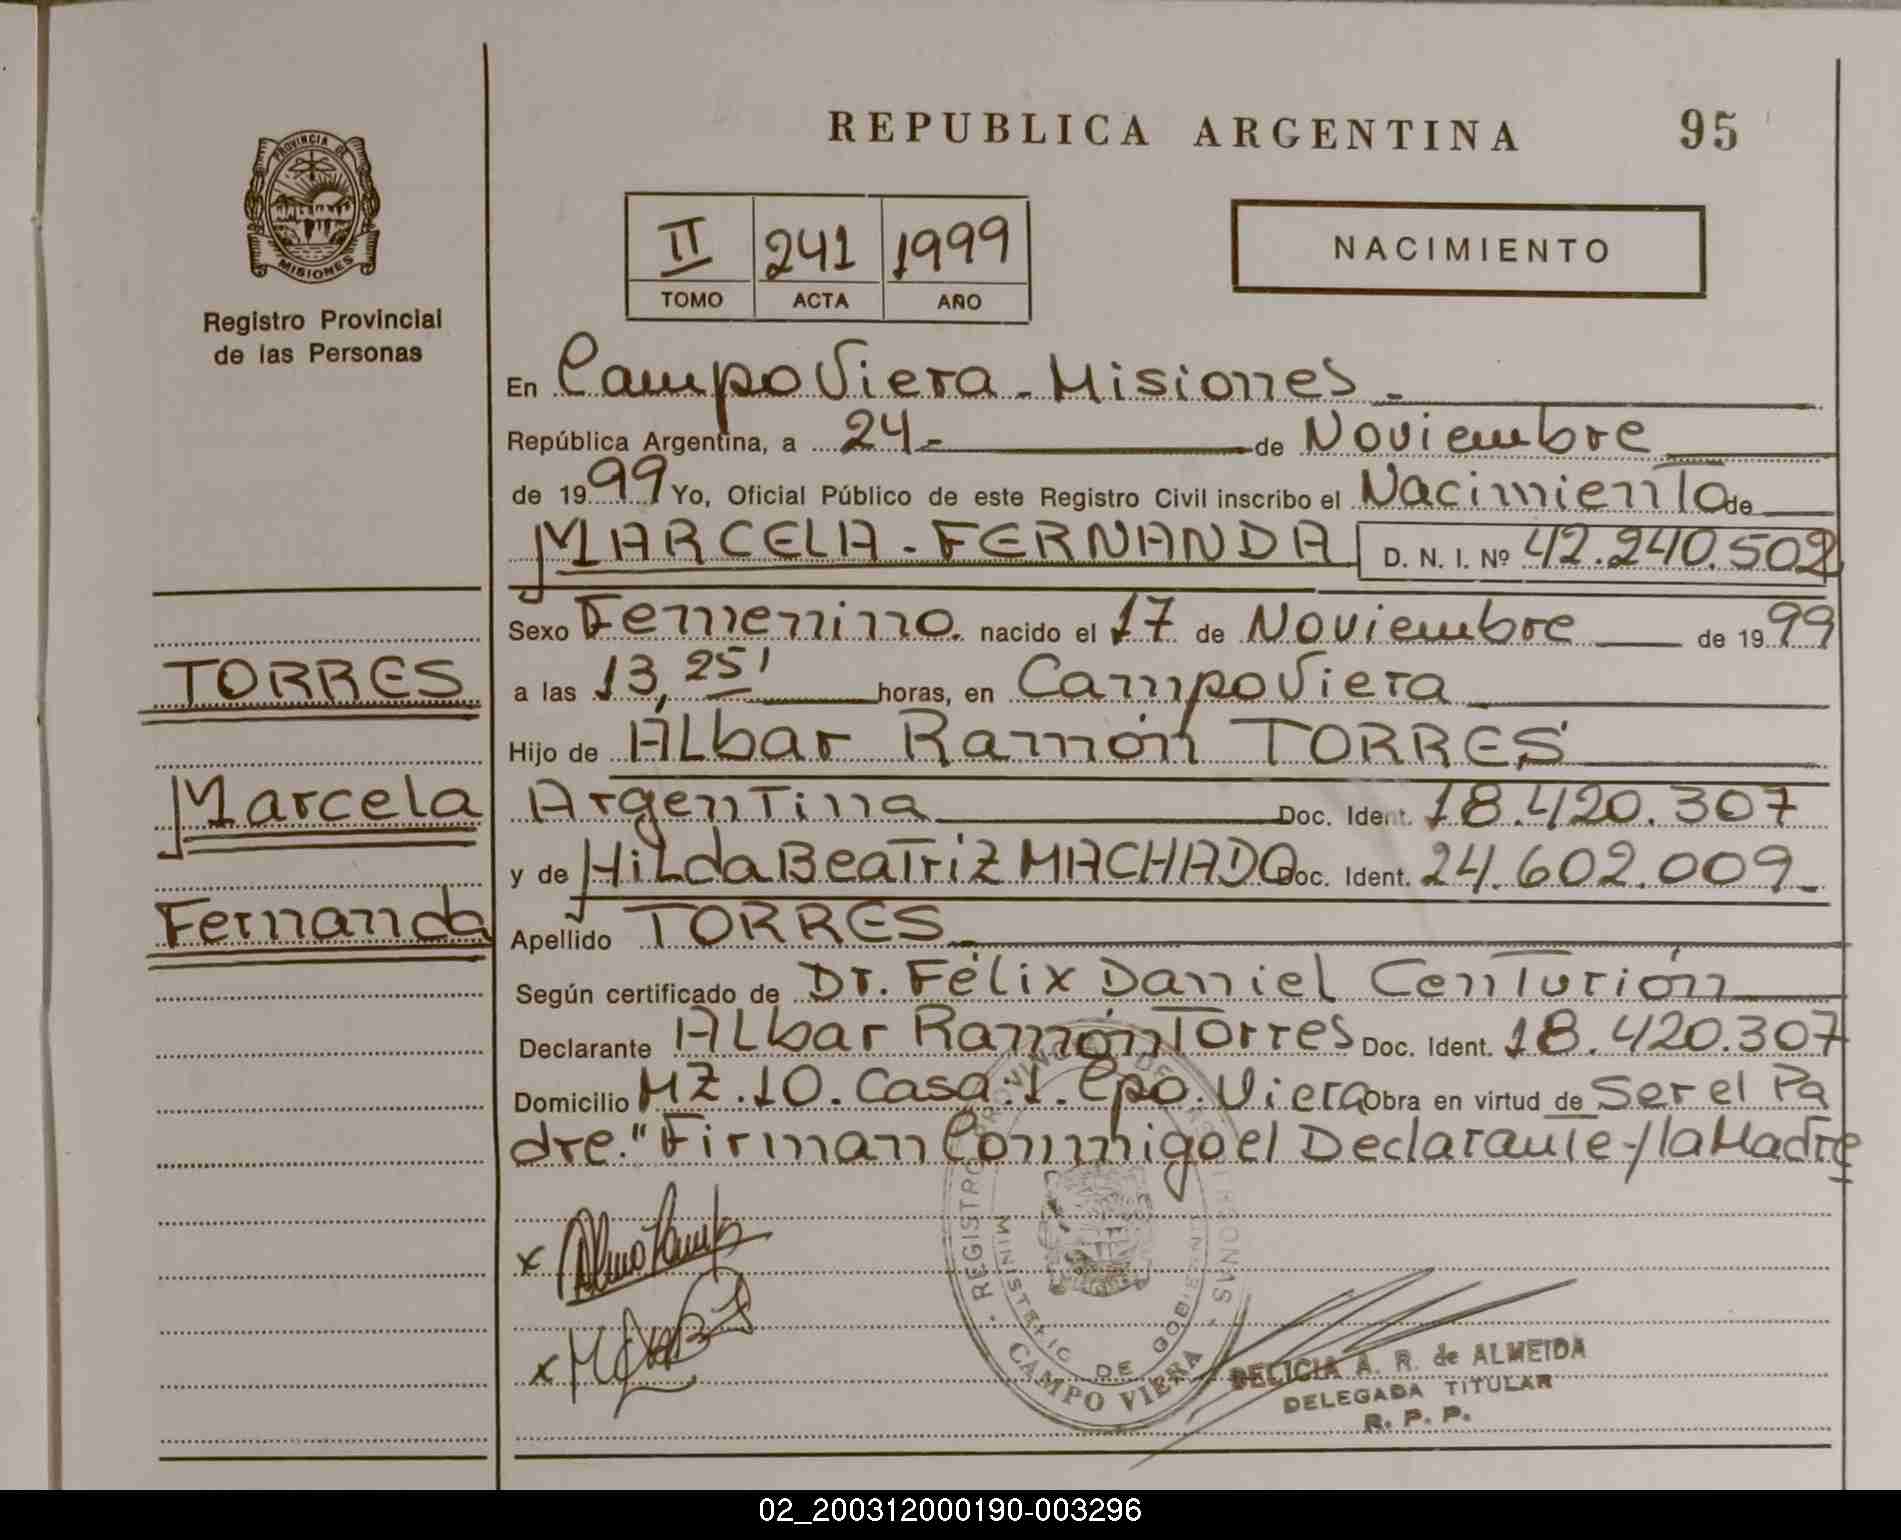 REPUBLICA ARGENTINA 95
PROVINCIA DE
MISIONES
Registro Provincial
de las Personas
II 241 1999
TOMO ACTA AÑO
NACIMIENTO
En Campo Viera - Misiones -
República Argentina, a 24- de Noviembre
de 1999 Yo, Oficial Público de este Registro Civil inscribo el Nacimiento de
MARCELA - FERNANDA D. N. I. Nº 42.240.502
Sexo Femenino. nacido el 17 de Noviembre de 1999
a las 13,25' horas, en Campo Viera
Hijo de Albar Ramón TORRES
Argentina Doc. Ident. 18.420.307
y de Hilda Beatriz MACHADO Doc. Ident. 24.602.009-
Apellido TORRES
Según certificado de Dr. Félix Daniel Centurión
Declarante Albar Ramón Torres Doc. Ident. 18.420.307
Domicilio MZ.10. Casa:1. Cpo. Viera Obra en virtud de Ser el Pa
dre." Firman Conmigo el Declarante-y la Madre
TORRES
Marcela
Fernanda
x
x
REGISTRO PROVINCIAL DE LAS PERSONAS
MINISTERIO DE GOBIERNO
CAMPO VIERA
DELICIA A. R. de ALMEIDA
DELEGADA TITULAR
R. P. P.
02_200312000190-003296